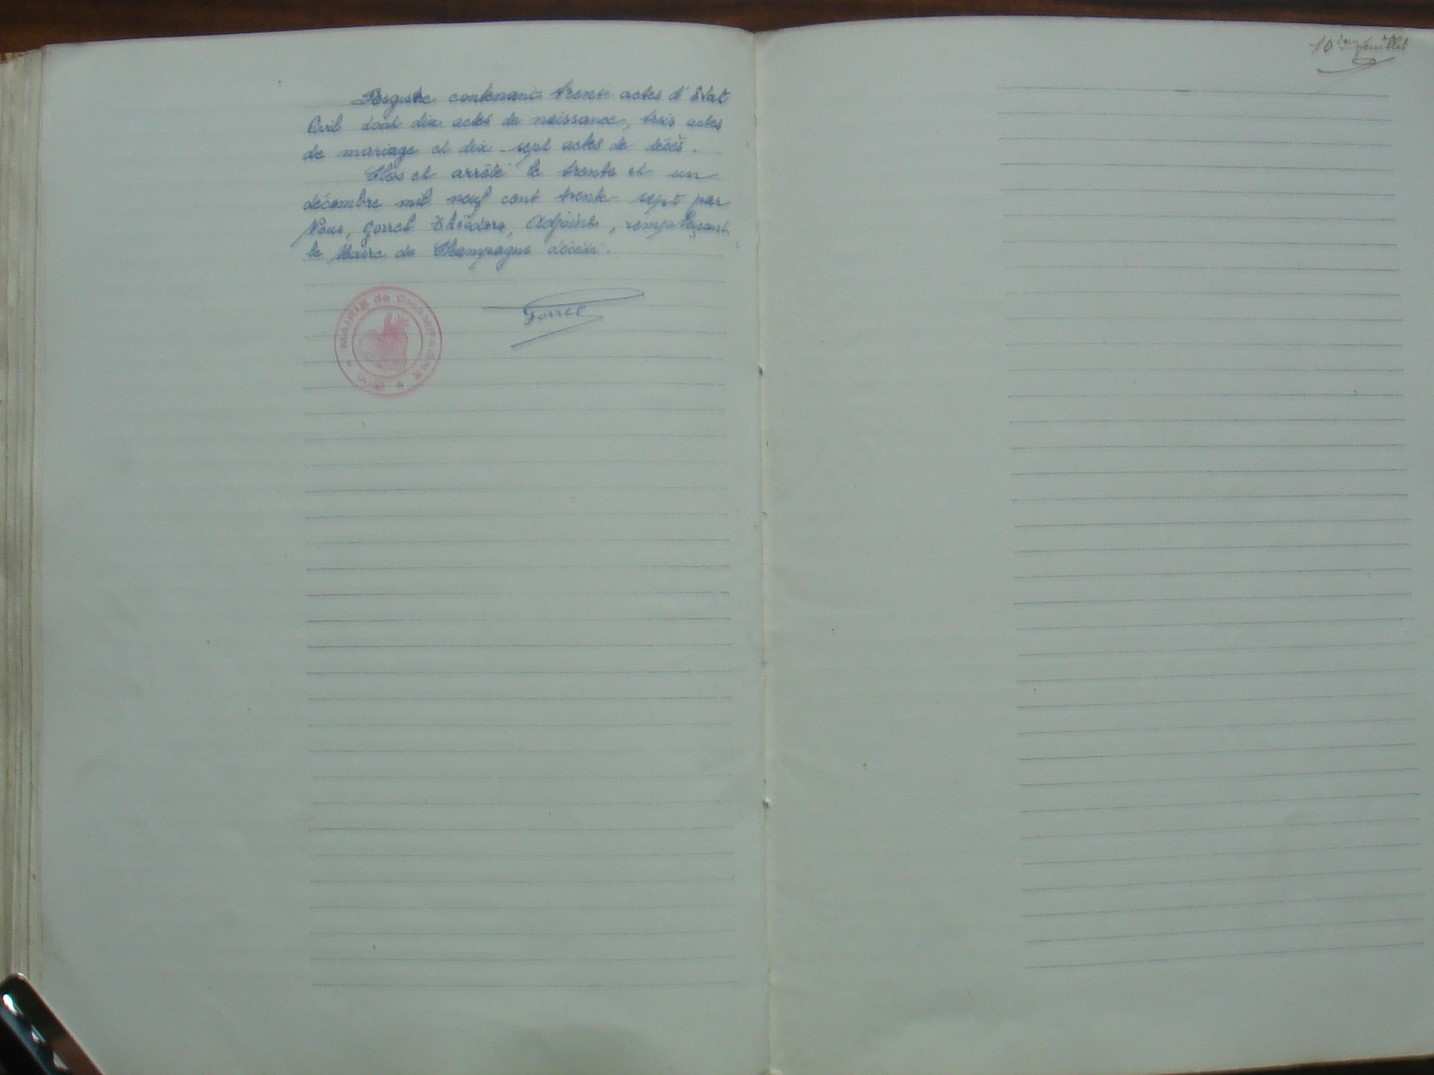 Registre contenant trente actes d'Etat
Civil dont dix actes de naissance, trois actes
de mariage et dix-sept actes de décès.
Clos et arrêté le trente et un
décembre mil neuf cent trente-sept par
Nous, Gorret Théodore, Adjoint, remplaçant
le Maire de Champagne décédé.
Gorret
MAIRIE de CHAMPAGNE
10ième feuillet